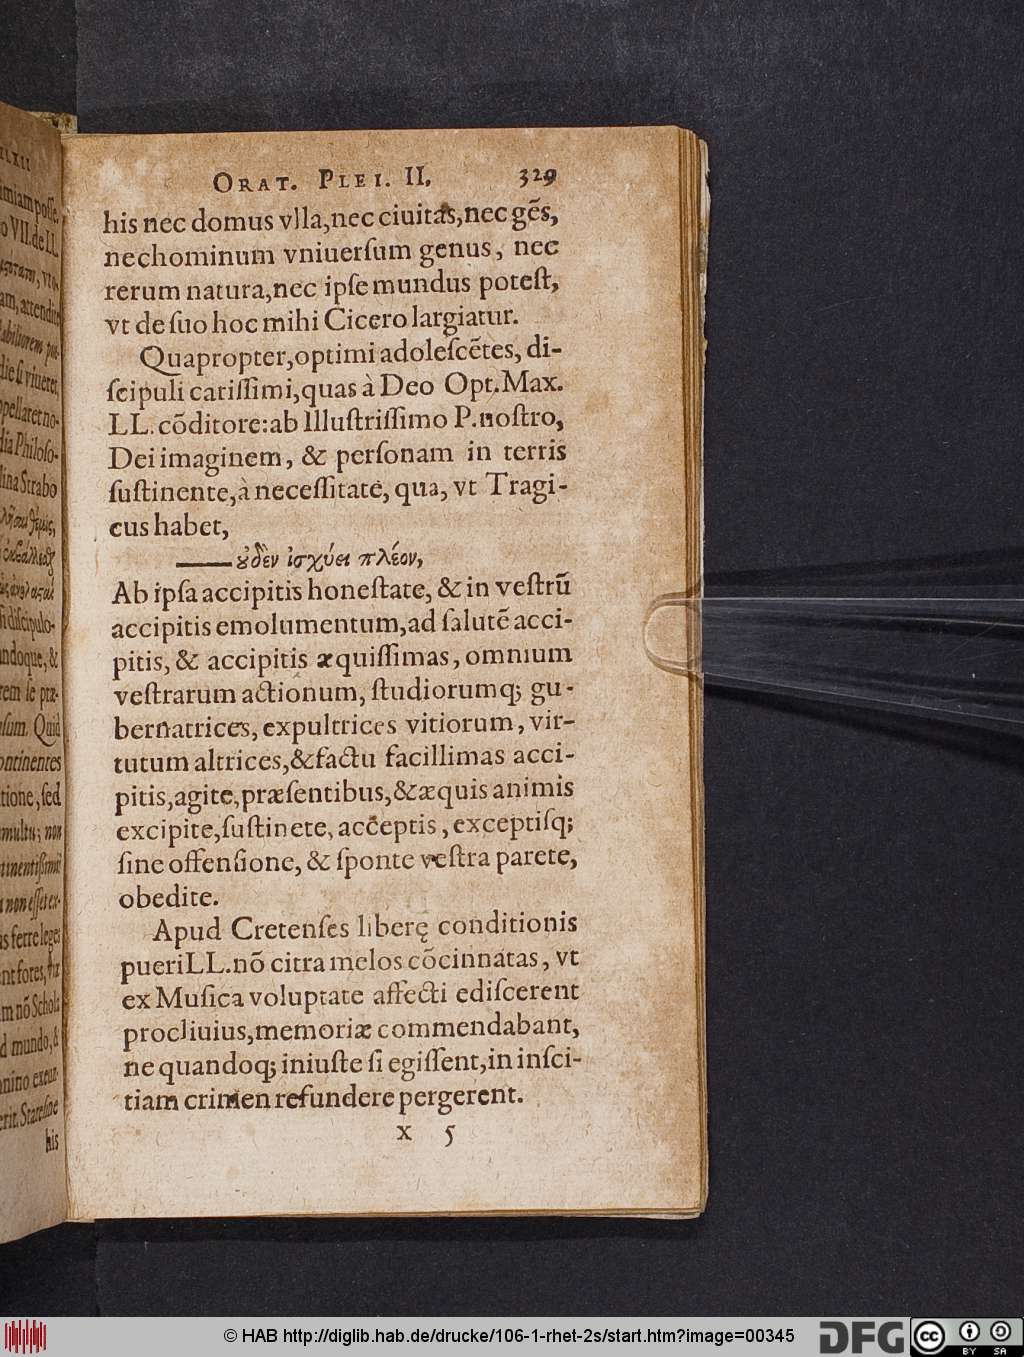 ORAT. PLEI. II. 329
his nec domus vlla, nec ciuitas, nec gẽs,
nec hominum vniuerſum genus, nec
rerum natura, nec ipſe mundus poteſt,
vt de ſuo hoc mihi Cicero largiatur.
Quapropter, optimi adoleſcẽtes, di-
ſcipuli cariſſimi, quas à Deo Opt. Max.
LL. cõditore: ab Illuſtriſſimo P. noſtro,
Dei imaginem, & perſonam in terris
ſuſtinente, à neceſſitate, qua, vt Tragi-
cus habet,
—— ȣ̓δὲν ἰσχύει πλέον,
Ab ipſa accipitis honeſtate, & in veſtrũ
accipitis emolumentum, ad ſalutẽ acci-
pitis, & accipitis æquiſſimas, omnium
veſtrarum actionum, ſtudiorumq; gu-
bernatrices, expultrices vitiorum, vir-
tutum altrices, & factu facillimas acci-
pitis, agite, præſentibus, & æquis animis
excipite, ſuſtinete, acceptis, exceptiſq;
ſine offenſione, & ſponte veſtra parete,
obedite.
Apud Cretenſes liberę conditionis
pueri LL. nõ citra melos cõcinnatas, vt
ex Muſica voluptate affecti ediſcerent
procliuius, memoriæ commendabant,
ne quandoq; iniuſte ſi egiſſent, in inſci-
tiam crimen refundere pergerent.
X 5
miam poſſe.
o VII. de LL.
am, attendite
die ſi viueret,
ppellaret no-
dia Philoſo-
lina Strabo
ndoque, &
rem ſe præ-
ſum. Quid
ontinentes
tione, ſed
multu; non
non eſſet ex-
is ferre leges
m nõ Schola
d mundo, &
his
© HAB http://diglib.hab.de/drucke/106-1-rhet-2s/start.htm?image=00345
DFG
cc BY SA